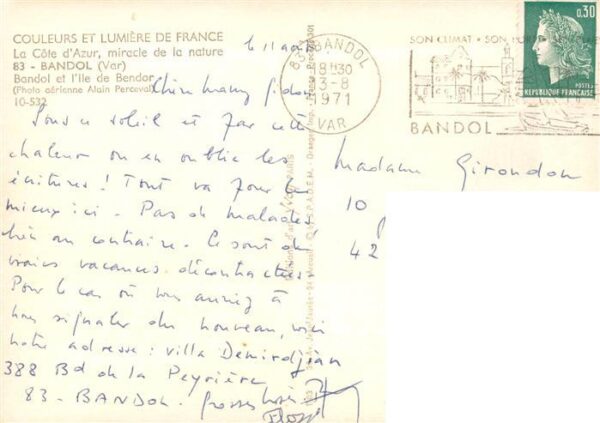 COULEURS ET LUMIÈRE DE FRANCE
La Côte d'Azur, miracle de la nature
83 - BANDOL (Var)
Bandol et l'Ile de Bendor
(Photo aérienne Alain Perceval)
10-532
le 11 août
Sous ce soleil et par cette
chaleur on en oublie les
écritures ! Tout va pour le
mieux ici. Pas de malades
bien au contraire. Ce sont de
vraies vacances décontractées.
Pour le cas où vous auriez à
nous signaler du nouveau, voici
notre adresse : villa Demirdjian
388 Bd de la Peyrière
83 - BANDOL. Grosses bises
83 BANDOL
18H30
13-8
1971
VAR
SON CLIMAT • SON PORT
BANDOL
0,30
REPUBLIQUE FRANÇAISE
POSTES
Madame Girondon
10
42